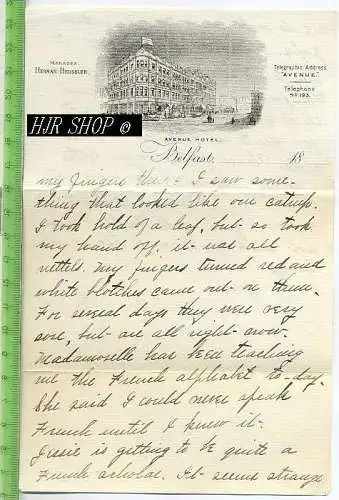 MANAGER
HERMAN HEISSLER.
Telegraphic Address,
"AVENUE".
Telephone
No 193.
HJR SHOP ©
AVENUE HOTEL.
Belfast, 18
my fingers that - I saw some-
thing that looked like our catnip.
I took hold of a leaf, but - so took
my hand off. it - was all
nettels. My fingers turned red and
white blotches came out - on them.
For several days they were very
sore, but - are all right - now.
Madamoselle has been teaching
me the French alphabet to-day.
She said I could never speak
French until I knew it -
Jessie is getting to be quite a
French scholar. It - seems strange